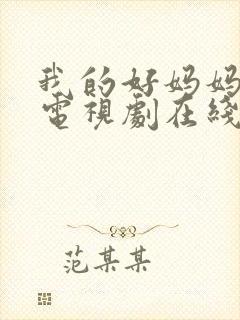 我的好妈妈
電視劇在綫
范某某